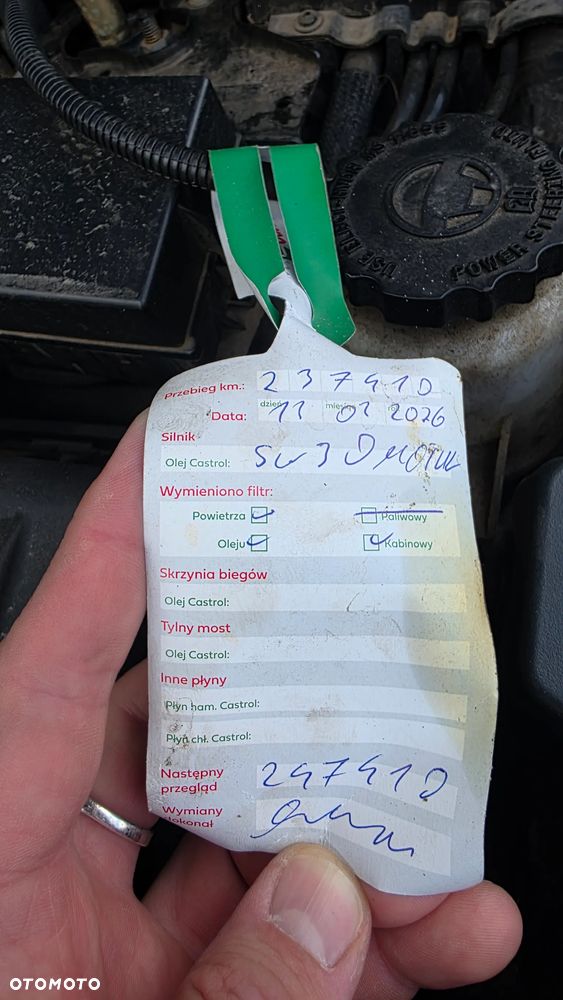 POWER STEERING
Przebieg km.: 237410
Data: dzień 11 miesiąc 01 2026
Silnik
Olej Castrol: 5w30 MOTUL
Wymieniono filtr:
Powietrza Paliwowy
Oleju Kabinowy
Skrzynia biegów
Olej Castrol:
Tylny most
Olej Castrol:
Inne płyny
Płyn ham. Castrol:
Płyn chł. Castrol:
Następny
przegląd 247410
Wymiany
dokonał
OTOMOTO